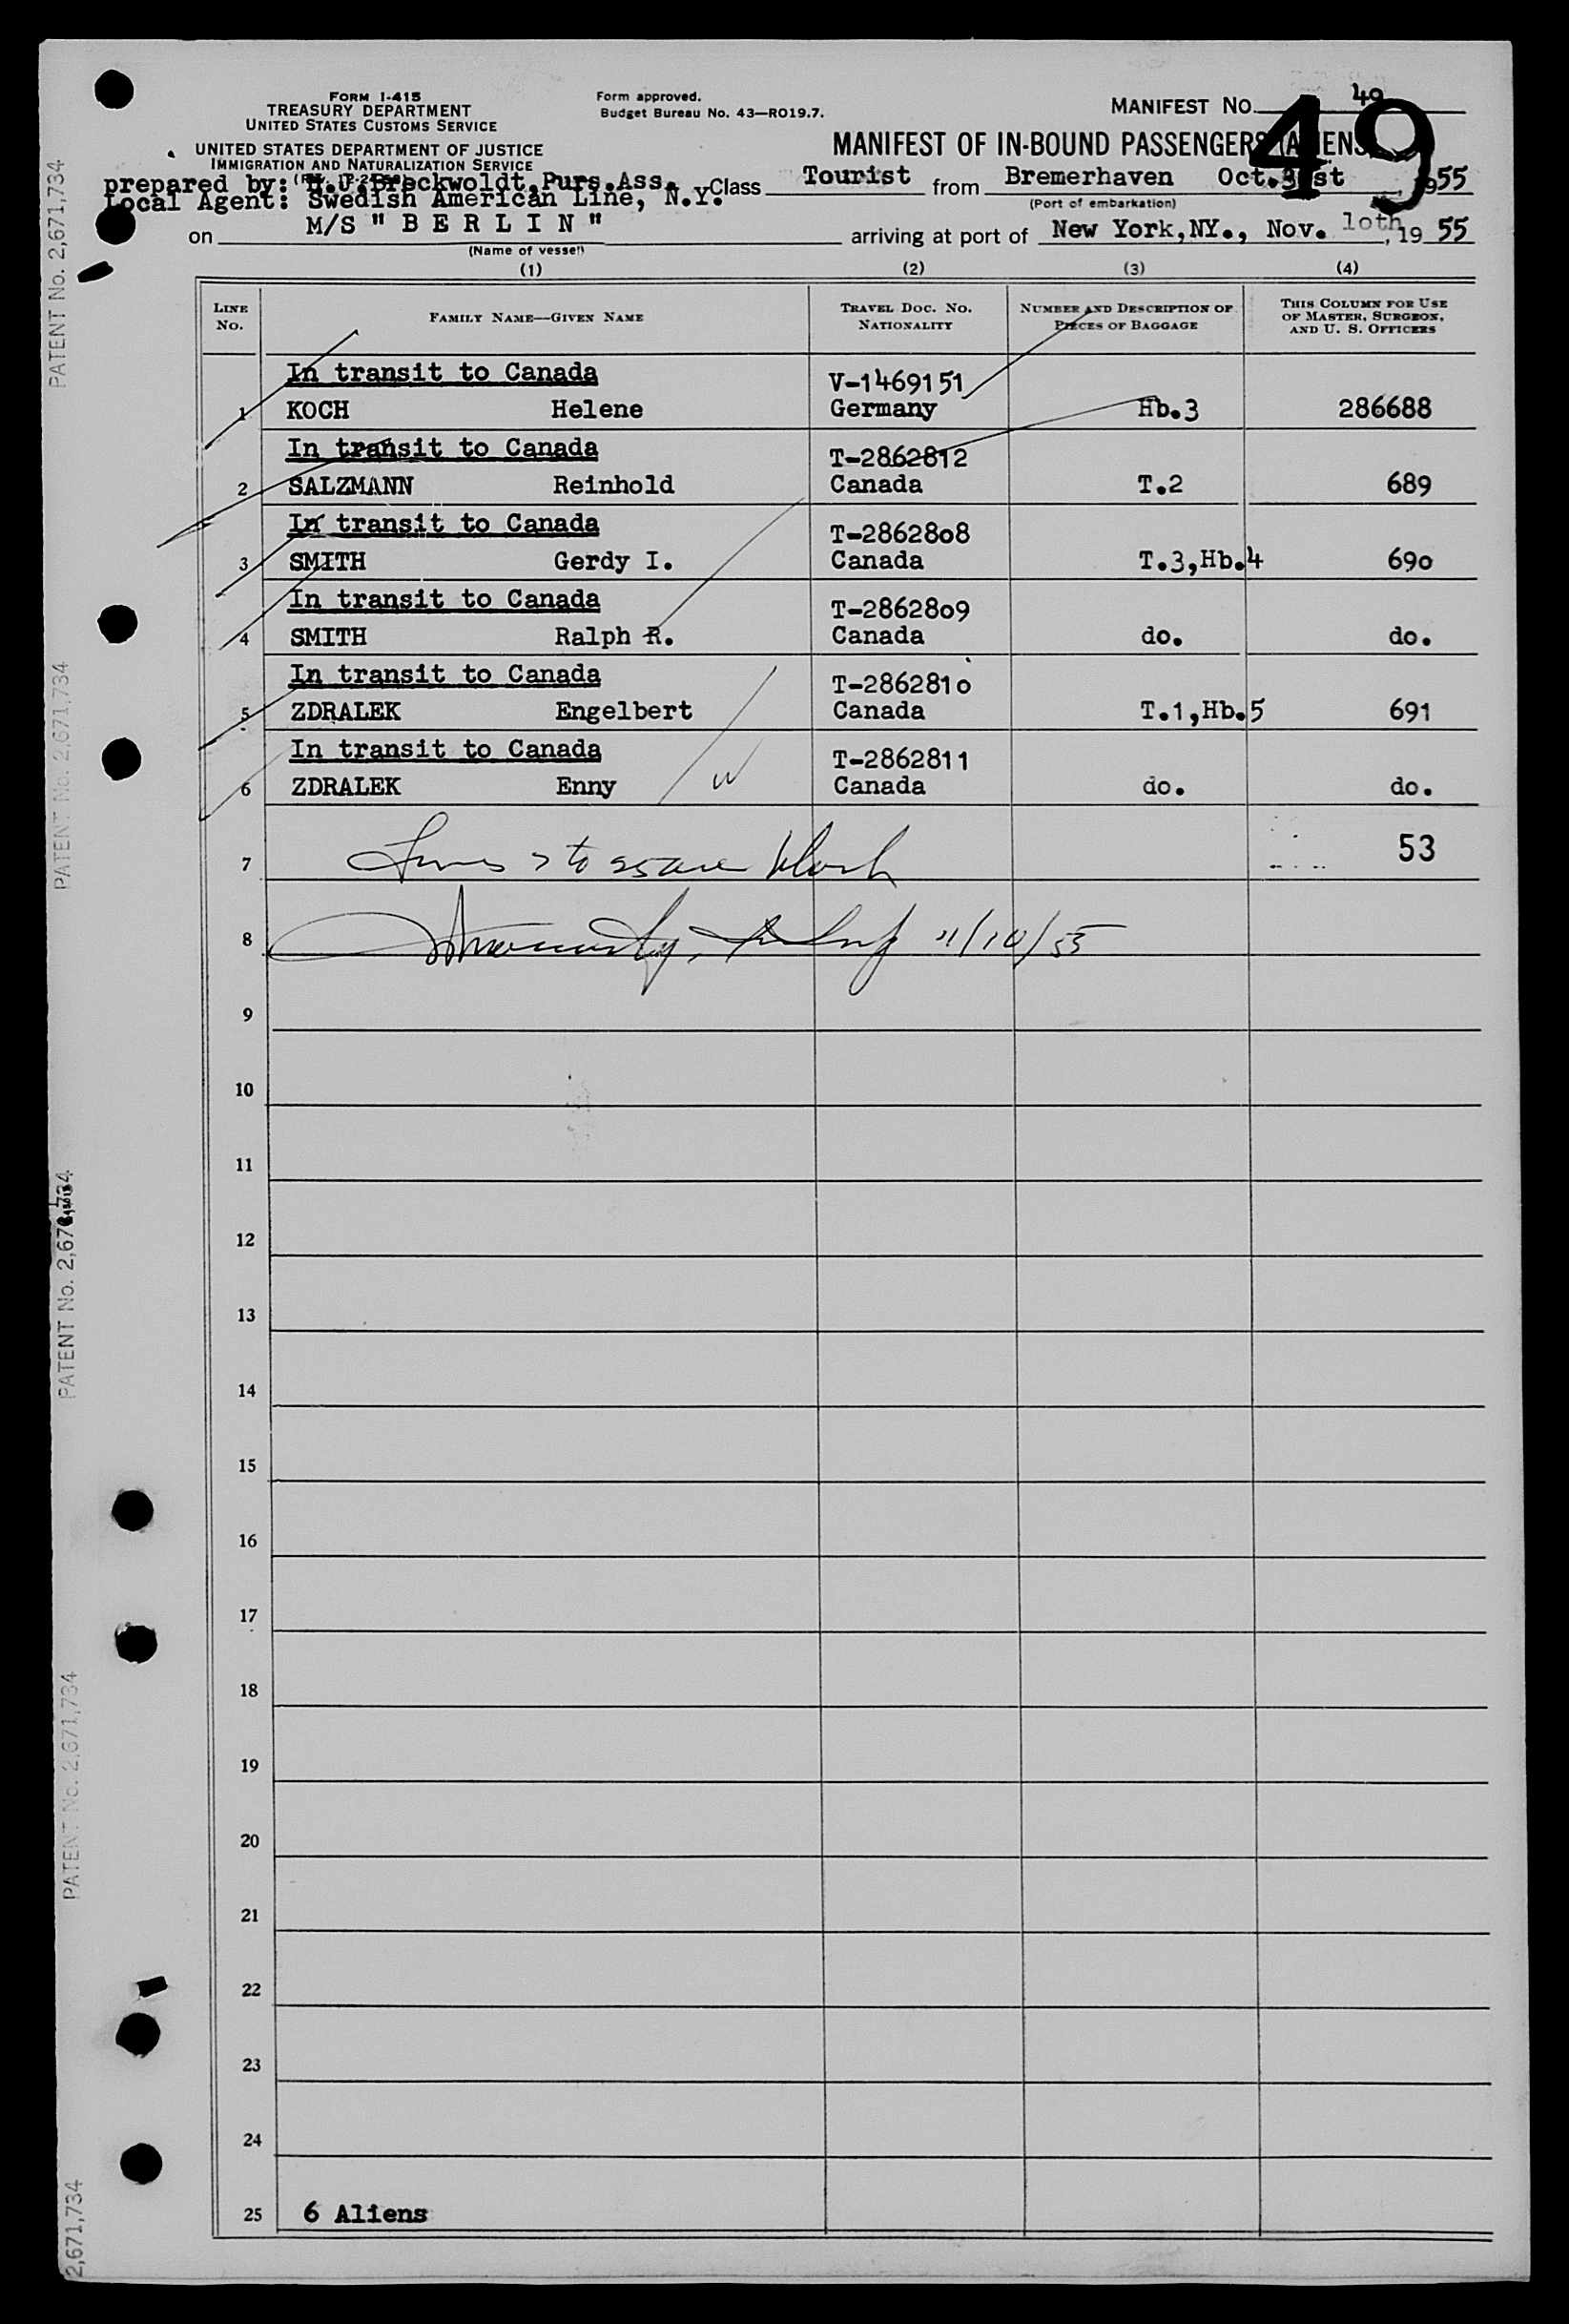 FORM I-415
TREASURY DEPARTMENT
UNITED STATES CUSTOMS SERVICE
UNITED STATES DEPARTMENT OF JUSTICE
IMMIGRATION AND NATURALIZATION SERVICE
Form approved.
Budget Bureau No. 43—RO19.7.
MANIFEST NO. 49
49
MANIFEST OF IN-BOUND PASSENGERS (ALIENS)
prepared by: H.J.Breckwoldt,Purs.Ass.
Local Agent: Swedish American Line, N.Y.
Class Tourist from Bremerhaven Oct.31st, 1955
(Port of embarkation)
on M/S " B E R L I N " arriving at port of New York,NY., Nov. 1oth, 19 55
(Name of vessel)
(1) (2) (3) (4)
LINE NO. FAMILY NAME—GIVEN NAME TRAVEL DOC. NO. NATIONALITY NUMBER AND DESCRIPTION OF PIECES OF BAGGAGE THIS COLUMN FOR USE OF MASTER, SURGEON, AND U. S. OFFICERS
In transit to Canada V-1469151
1 KOCH Helene Germany Hb.3 286688
In transit to Canada T-2862812
2 SALZMANN Reinhold Canada T.2 689
In transit to Canada T-28628o8
3 SMITH Gerdy I. Canada T.3,Hb.4 69o
In transit to Canada T-28628o9
4 SMITH Ralph R. Canada do. do.
In transit to Canada T-286281o
5 ZDRALEK Engelbert Canada T.1,Hb.5 691
In transit to Canada T-2862811
6 ZDRALEK Enny Canada do. do.
7 Lines 7 to 25 are blank 53
8 11/10/55
9
10
11
12
13
14
15
16
17
18
19
20
21
22
23
24
25 6 Aliens
PATENT No. 2,671,734
PATENT No. 2,671,734
PATENT No. 2,671,734
PATENT No. 2,671,734
2,671,734